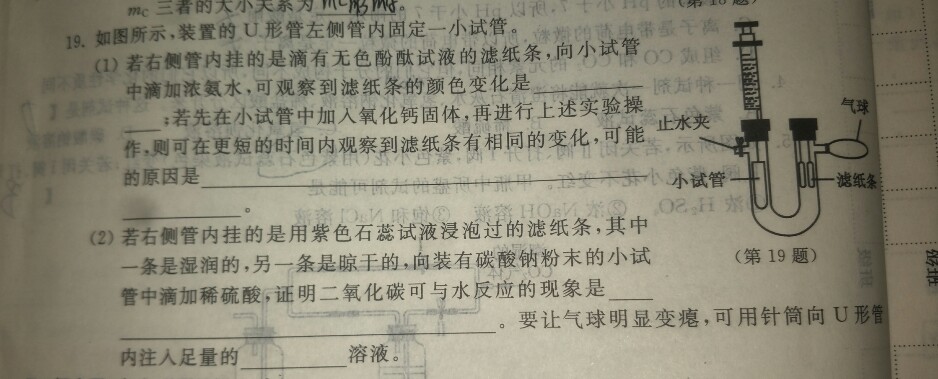 mc 三者的大小关系为
19. 如图所示,装置的 U 形管左侧管内固定一小试管。
(1) 若右侧管内挂的是滴有无色酚酞试液的滤纸条,向小试管
中滴加浓氨水,可观察到滤纸条的颜色变化是
;若先在小试管中加入氧化钙固体,再进行上述实验操
作,则可在更短的时间内观察到滤纸条有相同的变化,可能
的原因是
。
(2) 若右侧管内挂的是用紫色石蕊试液浸泡过的滤纸条,其中
一条是湿润的,另一条是晾干的,向装有碳酸钠粉末的小试
管中滴加稀硫酸,证明二氧化碳可与水反应的现象是
。要让气球明显变瘪,可用针筒向 U 形管
内注入足量的 溶液。
气球
止水夹
小试管
滤纸条
(第 19 题)